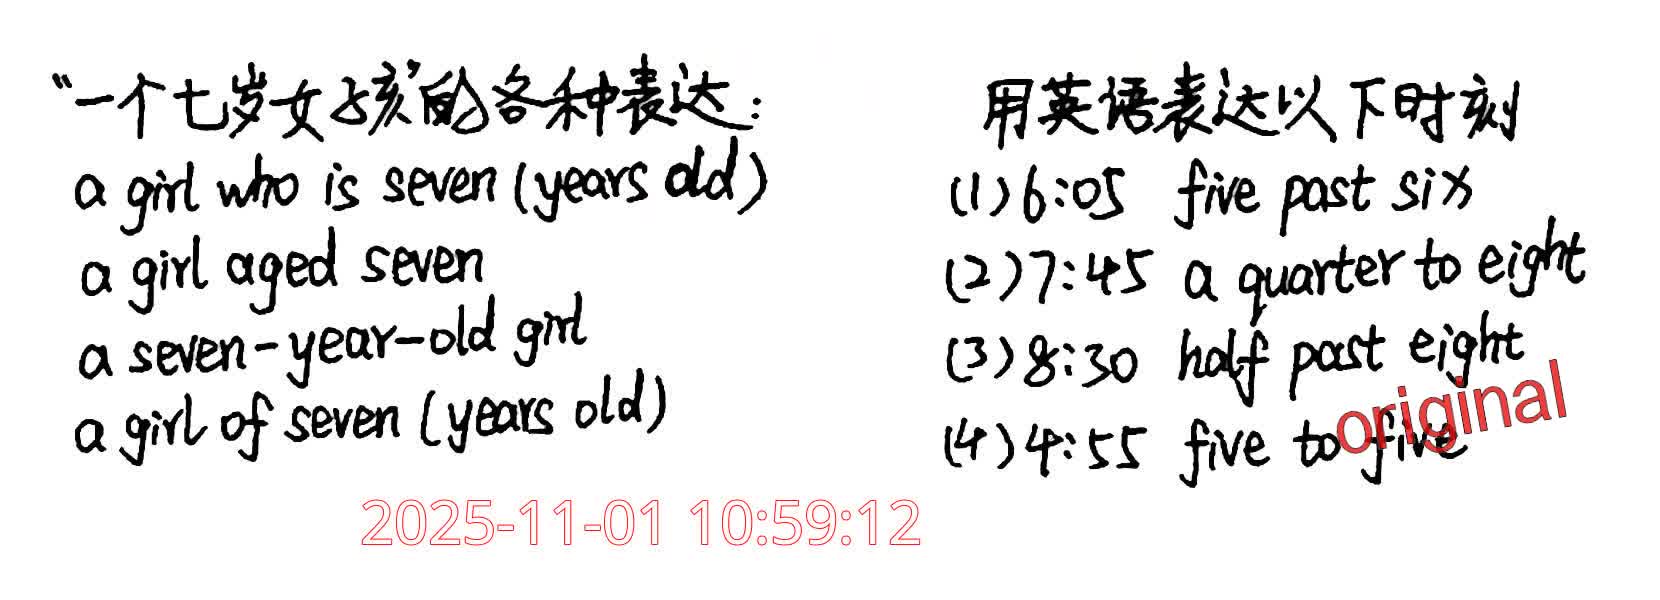 “一个七岁女孩”的各种表达：
a girl who is seven (years old)
a girl aged seven
a seven-year-old girl
a girl of seven (years old)
用英语表达以下时刻
(1) 6:05 five past six
(2) 7:45 a quarter to eight
(3) 8:30 half past eight
(4) 4:55 five to five
original
2025-11-01 10:59:12